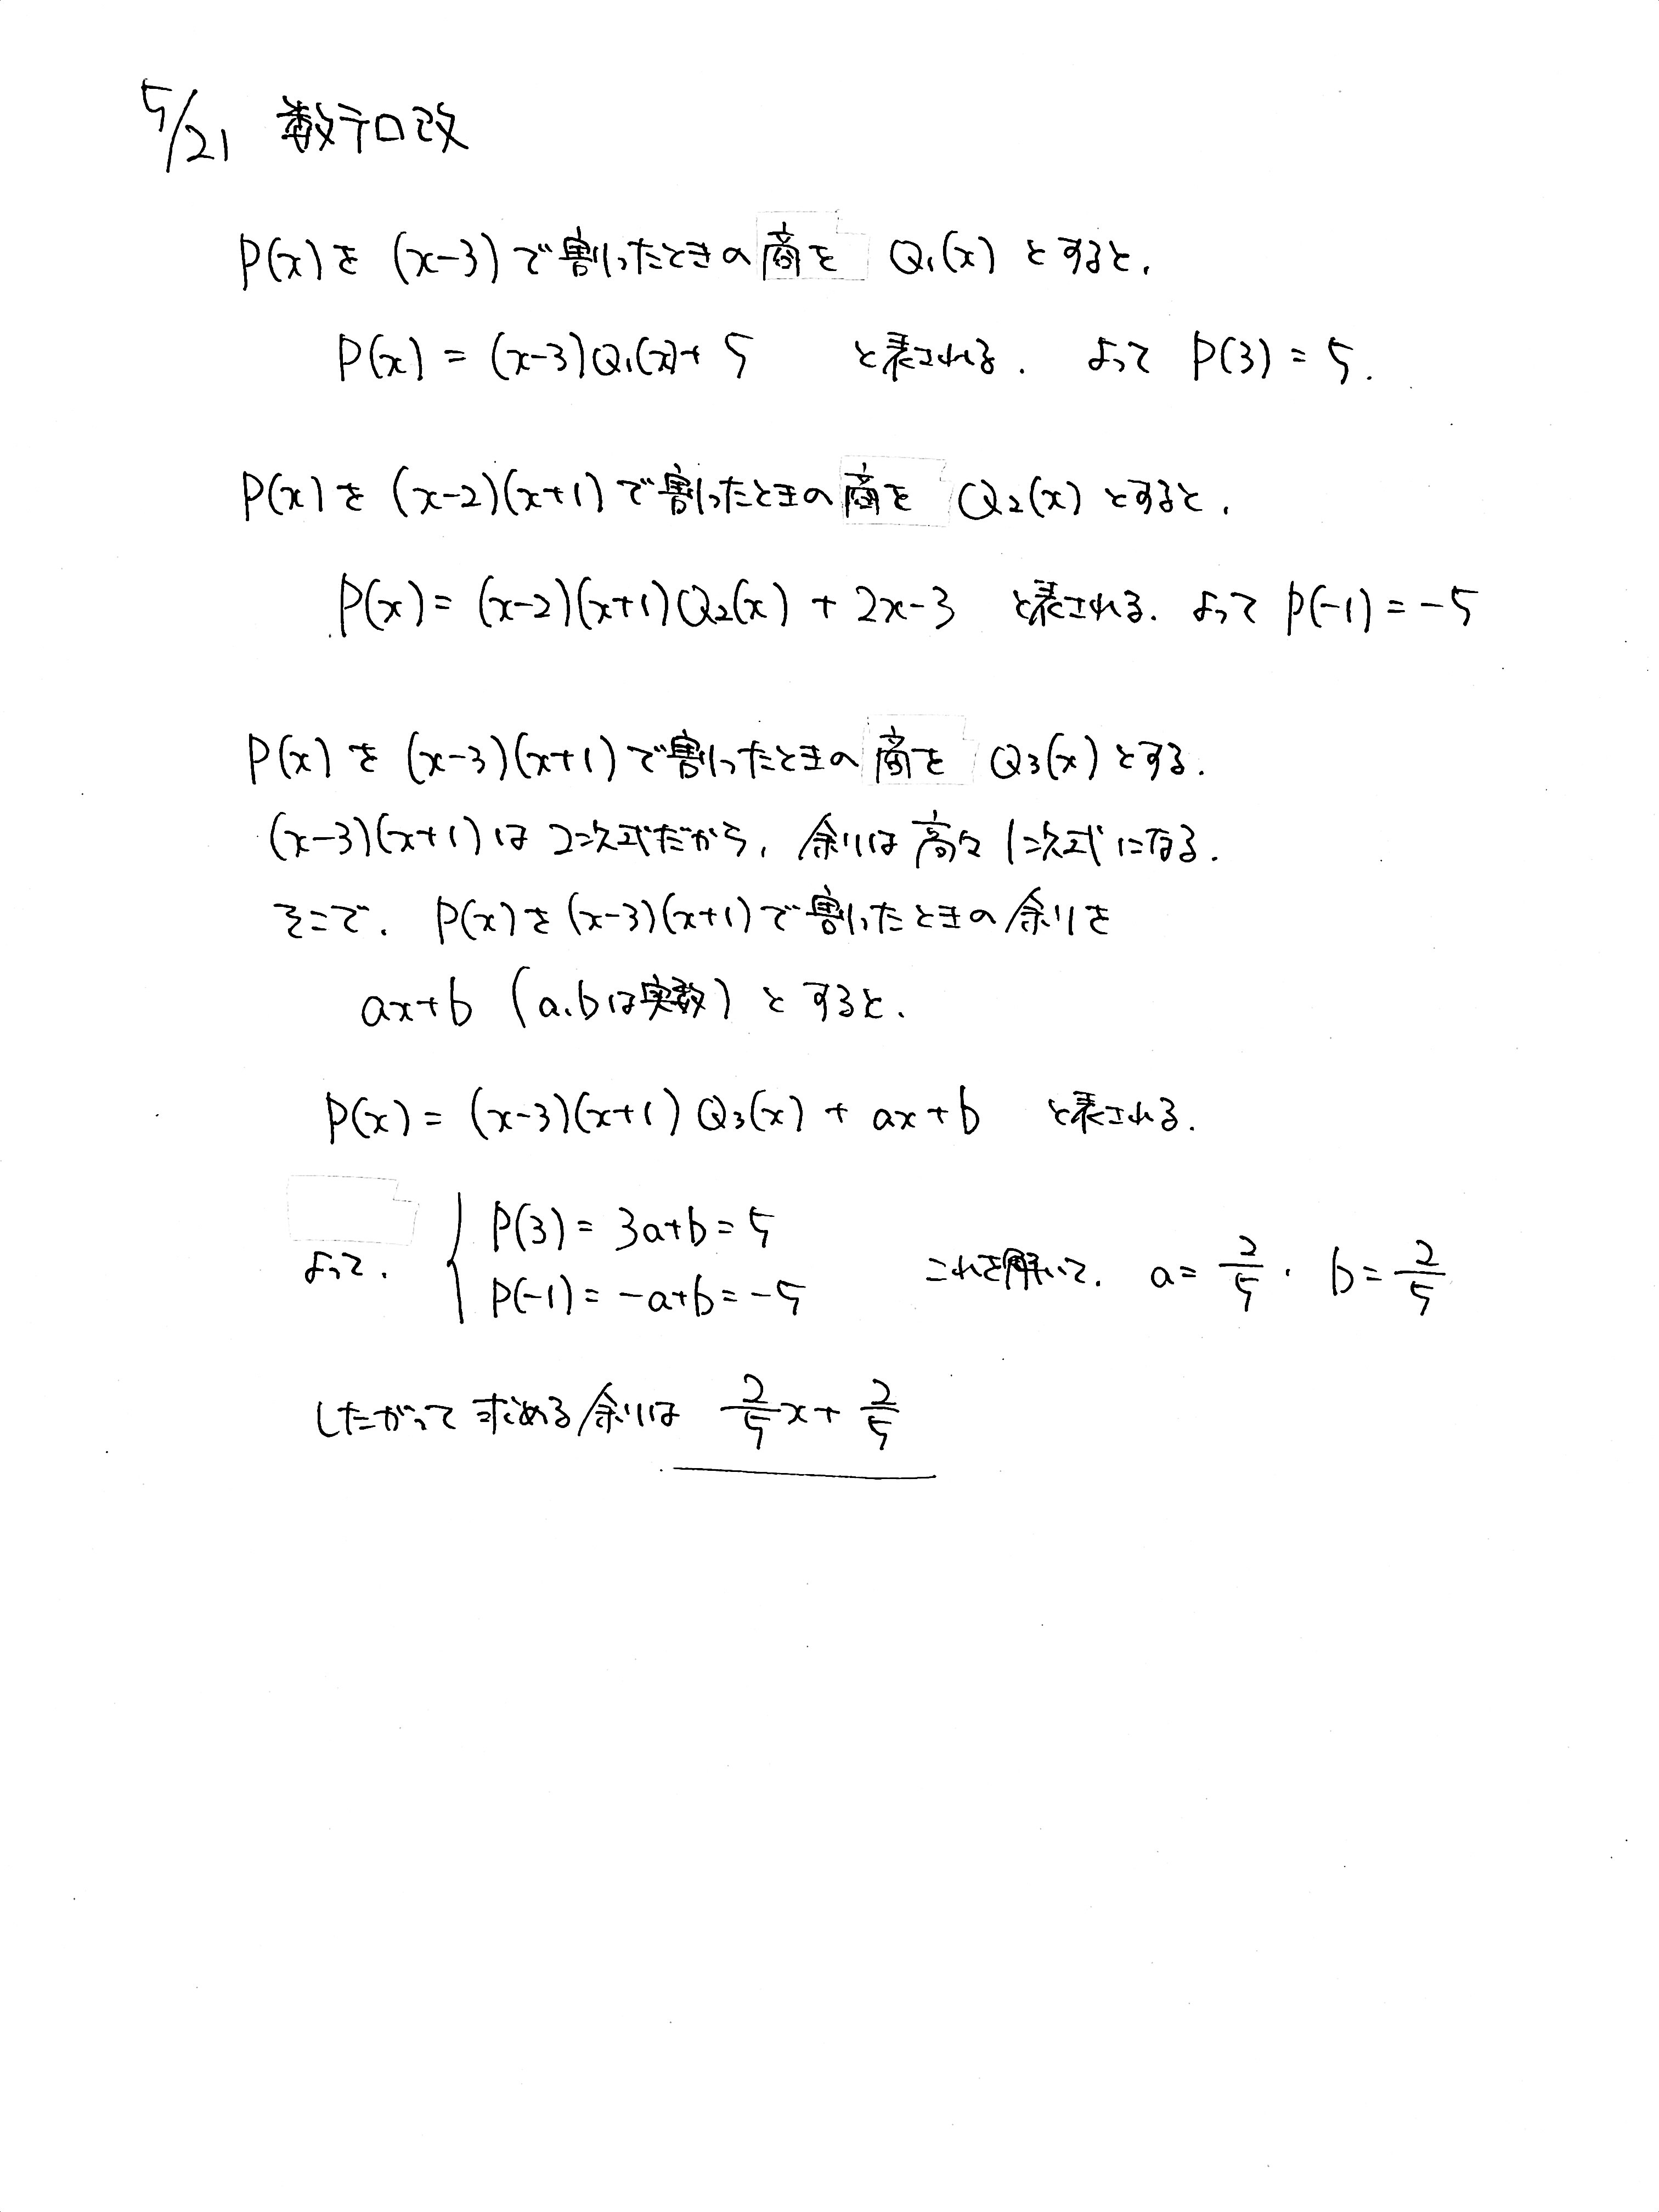 5/21 数テロ改
P(x)を(x-3)で割ったときの商を Q₁(x)とすると、
P(x) = (x-3)Q₁(x)+5 と表される. よって P(3)=5.
P(x)を(x-2)(x+1)で割ったときの商を Q₂(x)とすると、
P(x)=(x-2)(x+1)Q₂(x)+2x-3 と表される. よって P(-1)=-5
P(x)を(x-3)(x+1)で割ったときの商を Q₃(x)とする.
(x-3)(x+1)は2次式だから、余りは高々1次式になる.
そこで、P(x)を(x-3)(x+1)で割ったときの余りを
ax+b (a,bは実数)とすると、
P(x)=(x-3)(x+1)Q₃(x)+ax+b と表される.
よって、{ P(3)=3a+b=5
P(-1)=-a+b=-5 これを解いて、a=2/5, b=2/5
したがって求める余りは 2/5x+2/5